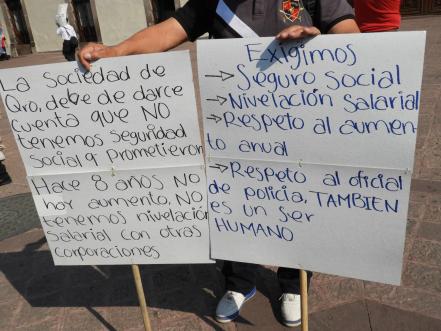 La Sociedad de
Qro, debe de darce
cuenta que NO
tenemos seguridad
social q prometieron
Hace 8 años NO
hay aumento, NO
tenemos nivelación
salarial con otras
corporaciones
Exigimos
→ Seguro social
→ Nivelación Salarial
→ Respeto al aumen
to anual
→ Respeto al oficial
de policia, TAMBIEN
es un ser
HUMANO